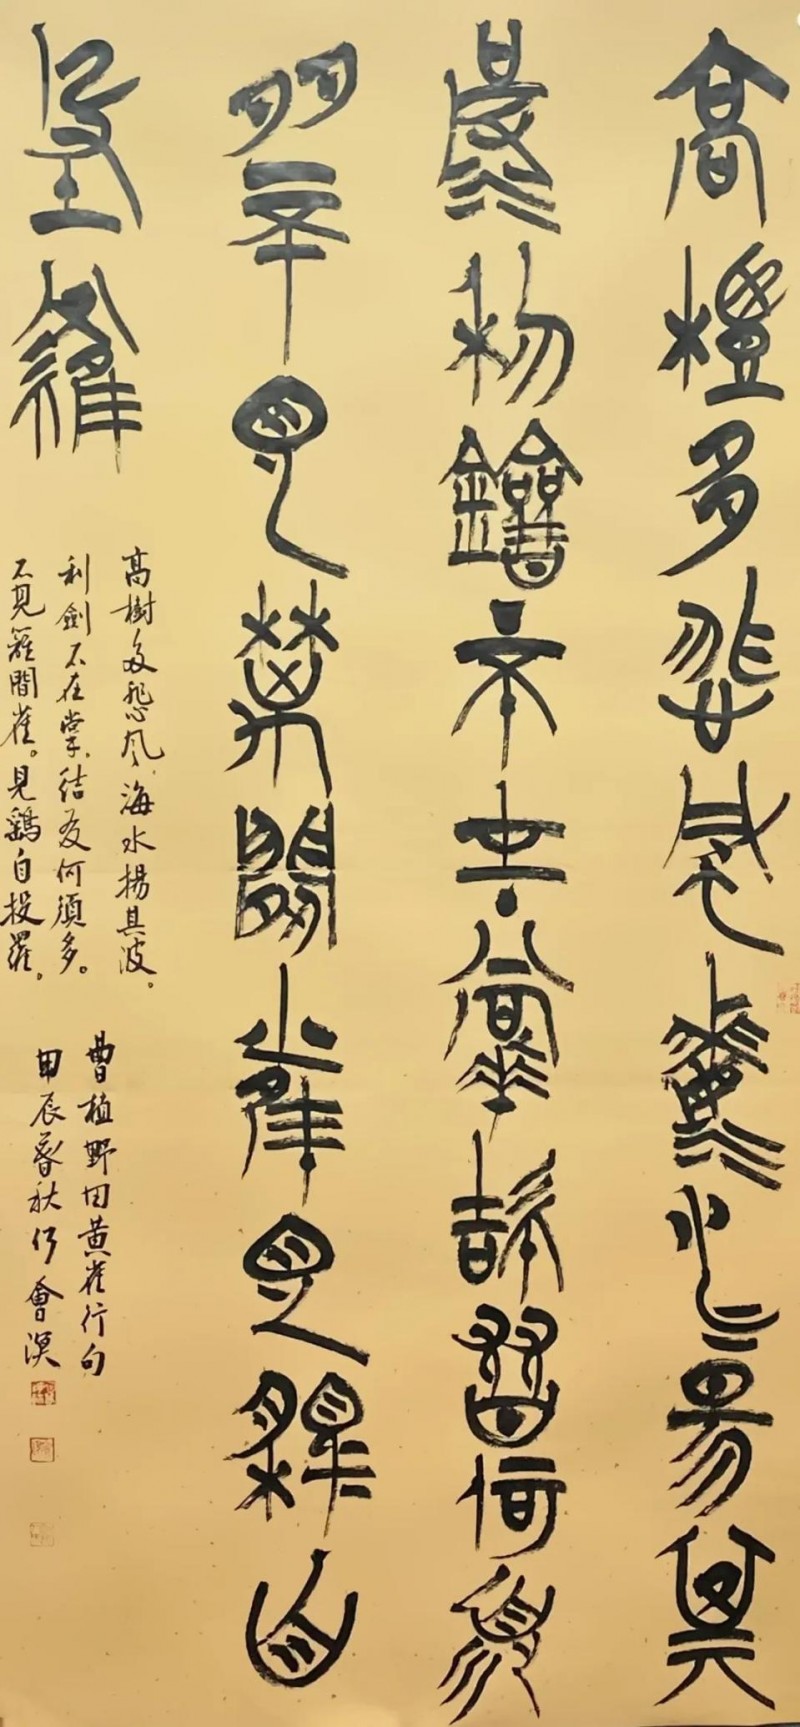 高樹多悲風海水揚其
波利劍不在掌結友何須
多不見籬間雀見鷂自
投羅
高樹多悲風、海水揚其波。
利劍不在掌、結友何須多。
不見籬間雀。見鷂自投羅。
曹植野田黃雀行句
甲辰暮秋